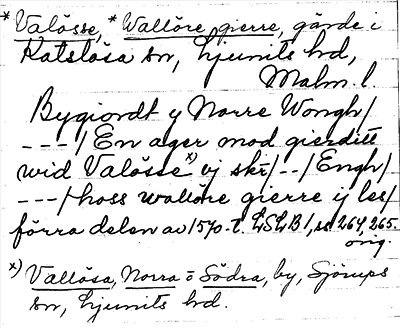 *Valösse, *Wallöre gierre, gärde i
Katslösa sn, Ljunits hd,
Malm. l
Bygiordt y Norre Wongh/
---/En ager mod gierditt
wid Valösse x) vj skr/--/Engh/
---/hoss wallöre gierre ij les/
förra delen av 1570-t. LSLB 1, ss 264, 265.
orig.
x) Vallösa, Norra o Södra, by, Sjörups
sn, Ljunits hd.